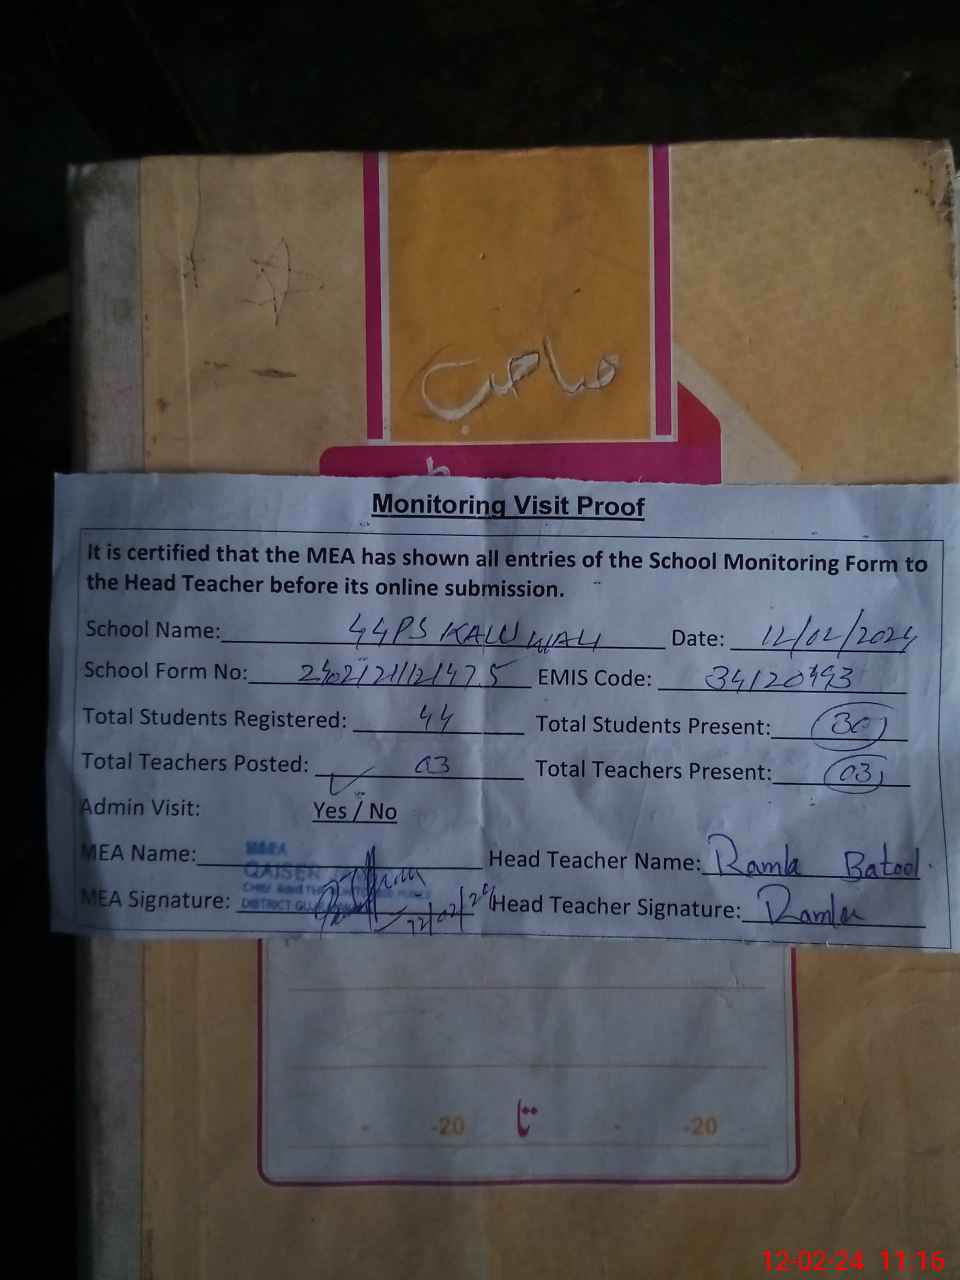 صاحب
Monitoring Visit Proof
It is certified that the MEA has shown all entries of the School Monitoring Form to
the Head Teacher before its online submission.
School Name: 44PS KALU WALI Date: 12/02/2024
School Form No: EMIS Code: 34120493
Total Students Registered: 44 Total Students Present: 30
Total Teachers Posted: 03 Total Teachers Present: 03
Admin Visit: Yes / No
MEA Name: MEA Head Teacher Name: Ramla Batool.
QAISER
MEA Signature: DISTRICT 12/02/24 Head Teacher Signature: Ramla
-20 تا -20
12-02-24 11:16